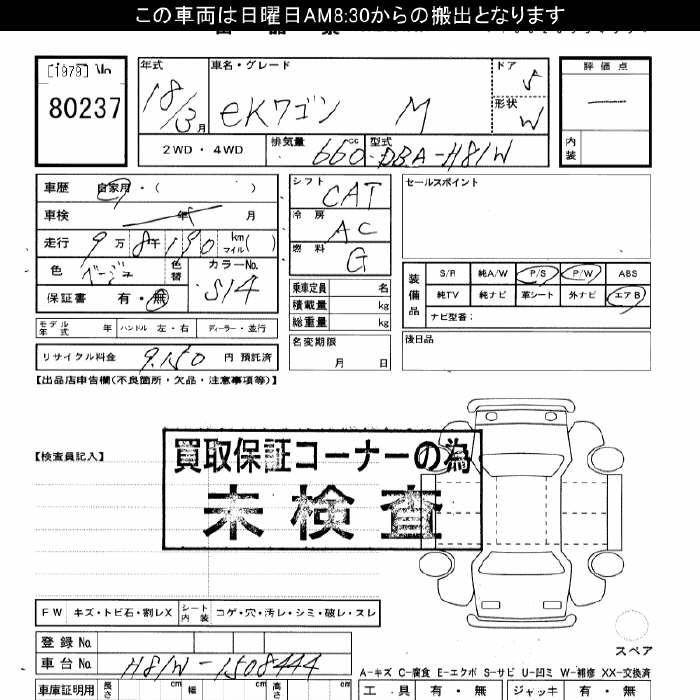 この車両は日曜日AM8:30からの搬出となります
[1979] No
80237
年式 車名・グレード ドア 5
18/3月 eKワゴン M 形状 W
2WD・4WD 排気量 660cc 型式 DBA-H81W
評価点
内装
車歴 自家用・( )
車検 年 月
走行 9万8千190 km マイル( )
色 ベージュ 色替 カラーNo. S14
保証書 有・無
モデル年式 年 ハンドル 左・右 ディーラー・並行
リサイクル料金 9,150 円 預託済
シフト CAT
冷房 AC
燃料 G
乗車定員 名
積載量 kg
総重量 kg
名変期限
月 日
セールスポイント
装備品 S/R 純A/W P/S P/W ABS
純TV 純ナビ 革シート 外ナビ エアB
ナビ型番:
後日品
【出品店申告欄(不良箇所・欠品・注意事項等)】
【検査員記入】
買取保証コーナーの為
未検査
FW キズ・トビ石・割レX シート内装 コゲ・穴・汚レ・シミ・破レ・スレ
スペア
登録No
車台No H81W-1508444
A-キズ C-腐食 E-エクボ S-サビ U-凹ミ W-補修 XX-交換済
車庫証明用 長さ cm 幅 cm 高さ cm
工具 有・無 ジャッキ 有・無